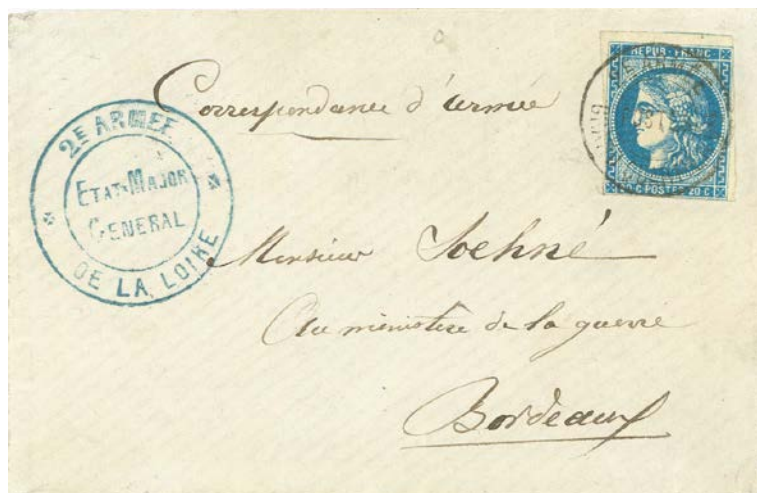 Correspondance d'armée
2E ARMEE
ETAT-MAJOR
GENERAL
DE LA LOIRE
REPUB·FRANC
20 C POSTES 20 C
Monsieur Soehné
Au ministère de la guerre
Bordeaux